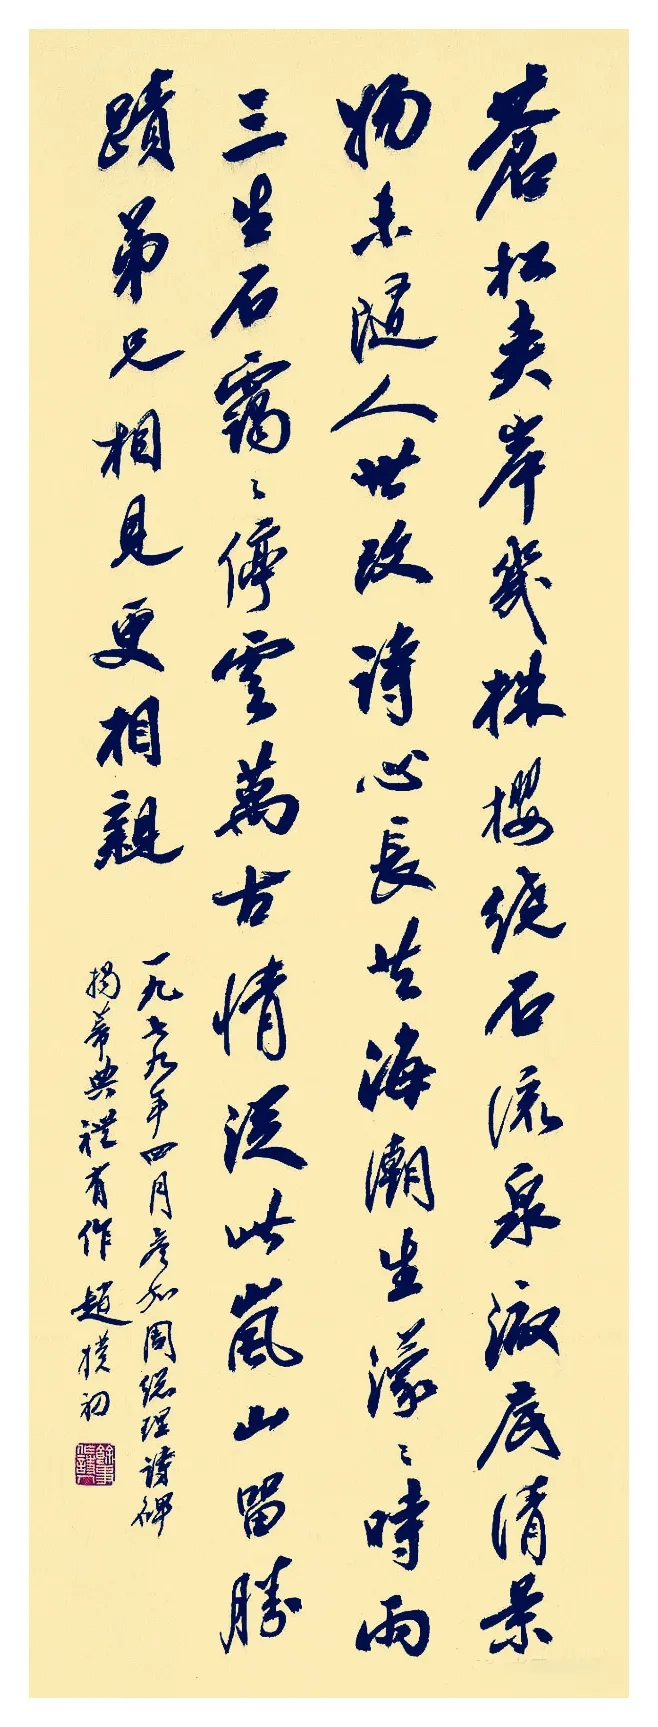 蒼松夹岸几株櫻绕石流泉澈底清景
物未随人世改诗心長共海潮生濛〻時雨
三生石靄〻停雲萬古情從此嵐山留勝
蹟弟兄相見更相親
一九七九年四月参加周総理诗碑
揭幕典禮有作 趙樸初